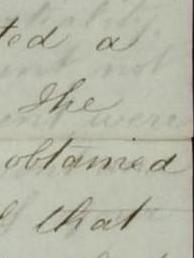 ted a
The
obtained
that